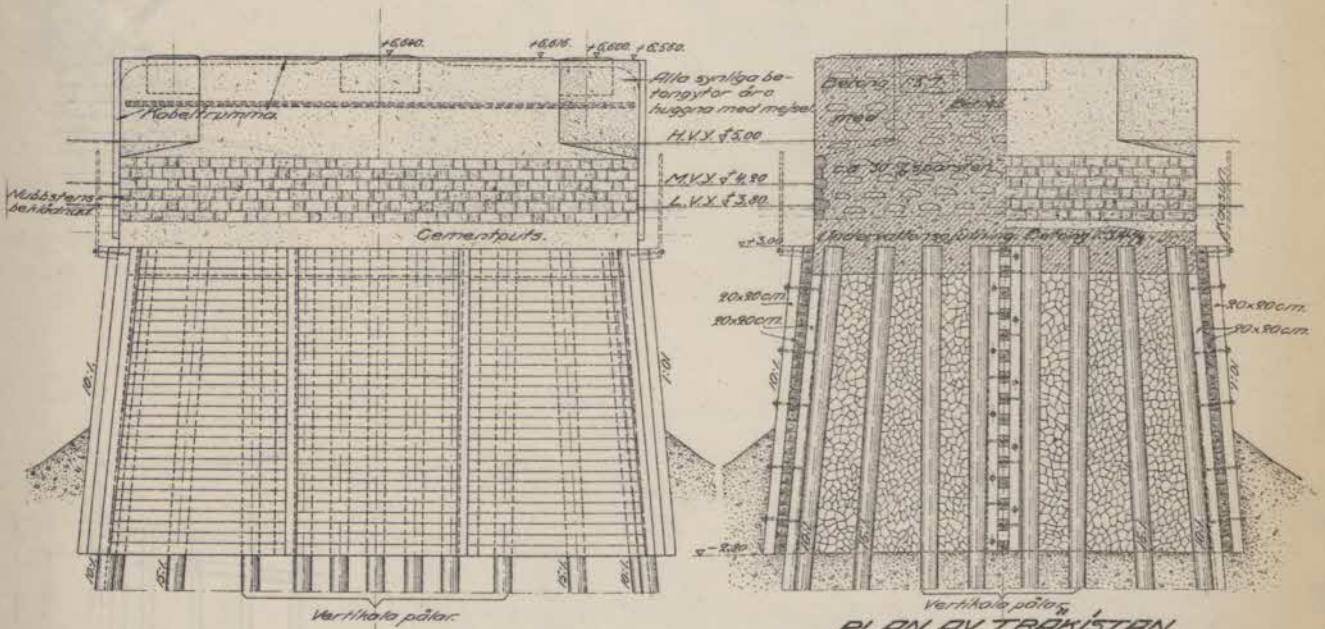 +6,640.
+6,616.
+6,600.
+6,560
Alla synliga be-
tongytor äro
huggna med mejsel.
Kabeltrumma.
H.V.Y. +5,00
M.V.Y. +4,20
L.V.Y. +3,80
Nubbstens
beklädnad
Cementputs.
10:1
10:1
10:1
15:1
15:1
10:1
Vertikala pålar.
Betong 1:5:7
Betong
med
ca 30 % sparsten
Undervattensgjutning Betong
+3,00
20x20cm.
20x20cm.
20x20cm.
20x20cm.
10:1
10:1
10:1
15:1
15:1
10:1
-2,20
Vertikala pålar
PLAN AV TRÄKISTAN